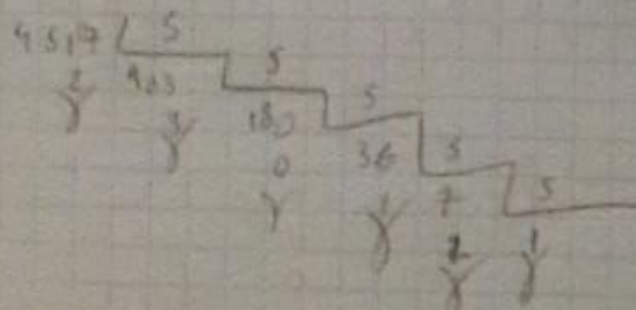 4517 5
903 5
2 3 180 5
0 36 5
1 7 5
2 1